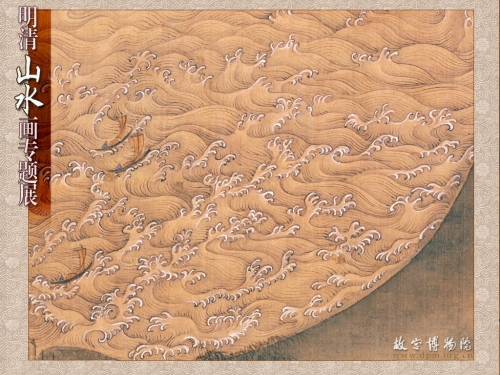 明清山水画专题展
故宫博物院
www.dpm.org.cn